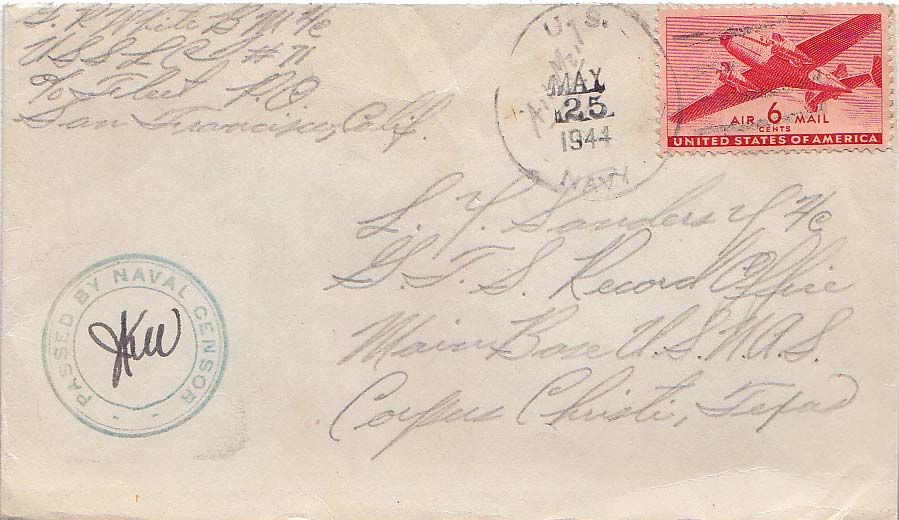 S. R. White B M 1/c
U S S L C I # 71
c/o Fleet P.O.
San Francisco, Calif.
U.S.
MAY
25
1944
NAVY
AIR 6 MAIL
CENTS
UNITED STATES OF AMERICA
L. Y. Sanders Y 1/c
G. T. S. Record Office
Main Base U.S.N.A.S.
Corpus Christi, Texas
PASSED BY NAVAL CENSOR
JKW